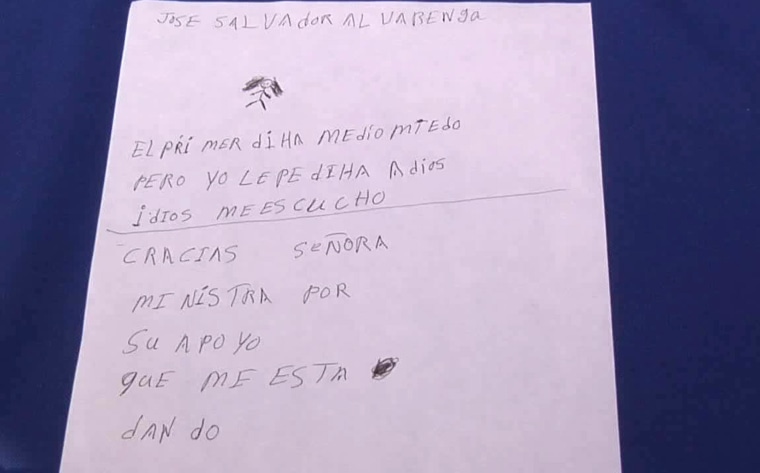 JOSE SALVAdOR ALVARENga
EL PRiMER diHA MEdio MiEdo
PERO YO LE PEdIHA Adios
idIOS MEESCUCHO
CRACIAS SEÑORA
MINiSTRA POR
SU APOYO
qUE ME ESTA
dANdO